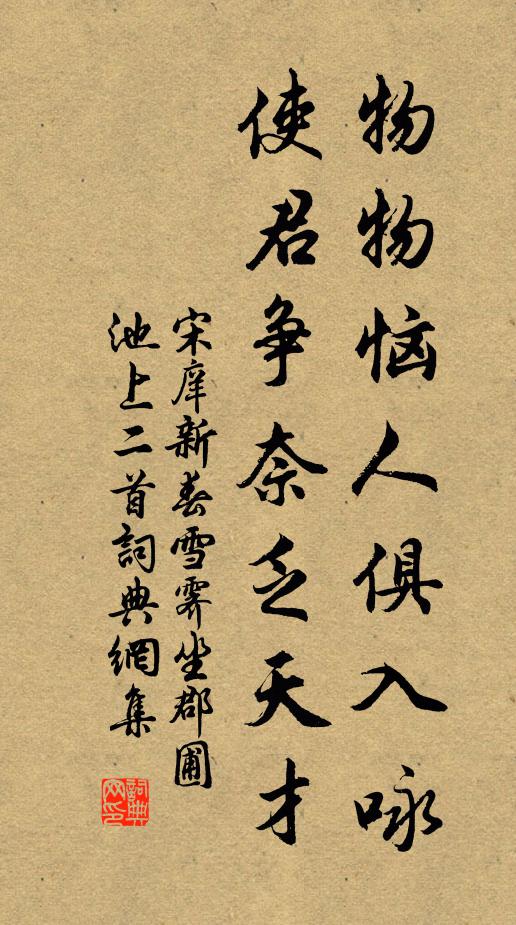 物物恼人俱入咏
使君争奈乏天才
宋庠新春雪霁坐郡圃
池上二首詞典網集
詞典
网印